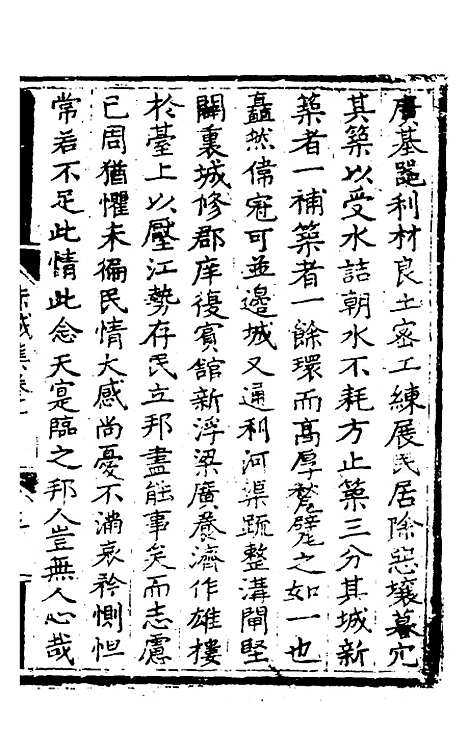 廣基器利材良土密工練展民居除惡壤暮穴
其築以受水詰朝水不耗方止築三分其城新
築者一補築者一餘環而高厚甃甓之如一也
矗然偉冠可並邊城又通利河渠疏整溝閘堅
闢裏城修郡庠復賓舘新浮梁廣養濟作雄樓
於臺上以壓江勢存民立邦盡能事矣而志慮
已周猶懼未徧民情大感尚憂不滿哀矜惻怛
常若不足此情此念天寔臨之邦人豈無人心哉
赤城集卷